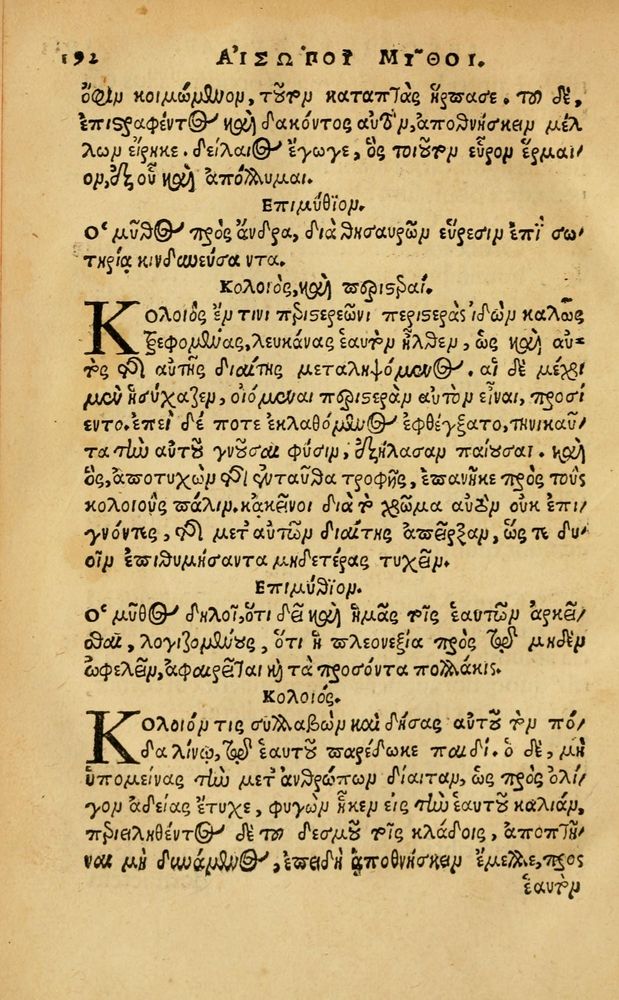 192 ΑἸΣΩ´ΠΟΥ ΜΥ͂ΘΟΙ.
ὄφιν κοιμώμϸον, τοῦτον καταπτὰς ἥρπασε. τοῦ δὲ,
ἐπιστραφέντος καὶ δακόντος αὐτὸν, ἀποθνήσκειν μέλ
λων εἴρηκε. δείλαιος ἔγωγε, ὃς τοιοῦτον εὗρον ἕρμαι-
ον, ἐξ οὗ καὶ ἀπόλλυμαι.
Ἐπιμύθϊον.
Ο῾ μῦθος πρὸς ἄνδρα, διὰ θησαυρῶν εὕρεσιν ἐπὶ σω-
τηρίᾳ κινδωεύσαντα.
Κολοιὸς, καὶ περιστεραί.
Κολοιὸς ἔν τινι περιστερεῶνι περιστερὰς ἰδὼν καλῶς
τρεφομένας, λευκάνας ἑαυτὸν ἦλθεν, ὡς καὶ αὐ-
τὸς τῆς αὐτῆς διαίτης μεταληψόμενος. αἱ δὲ μέχρι
μὲν ἡσύχαζεν, οἰόμεναι περιστερὰν αὐτὸν εἶναι, προσί
εντο. ἐπεὶ δέ ποτε ἐκλαθόμενος ἐφθέγξατο, τηνικαῦ-
τα τὴν αὐτοῦ γνοῦσαι φύσιν, ἐξήλασαν παίουσαι. καὶ
ὃς, ἀποτυχὼν τῆς ἐνταῦθα τροφῆς, ἐπανῆκε πρὸς τοὺς
κολοιοὺς πάλιν. κἀκεῖνοι διὰ τὸ χρῶμα αὐτὸν οὐκ ἐπι-
γνόντες, τῆς μετ' αὐτῶν διαίτης ἀπεῖρξαν, ὥστε δυ-
οῖν ἐπιθυμήσαντα μηδετέρας τυχεῖν.
Ἐπιμύθιον.
Ο῾ μῦθος δηλοῖ, ὅτι δεῖ καὶ ἡμᾶς τοῖς ἑαυτῶν ἀρκεῖ-
σθαι, λογιζομένους, ὅτι ἡ πλεονεξία πρὸς τῷ μηδὲν
ὠφελεῖν, ἀφαιρεῖται κỳ τὰ προσόντα πολλάκις.
Κολοιός.
Κολοιόν τις συλλαβὼν καὶ δήσας αὐτοῦ τὸν πό-
δα λίνῳ, τῷ ἑαυτοῦ παρέδωκε παιδί. ὁ δὲ, μὴ
ὑπομείνας τὴν μετ' ἀνθρώπων δίαιταν, ὡς πρὸς ὀλί-
γον ἀδείας ἔτυχε, φυγὼν ἧκεν εἰς τὴν ἑαυτοῦ καλιάν,
περιειληθέντος δὲ τοῦ δεσμοῦ τοῖς κλάδοις, ἀποπτῆ-
ναι μὴ δυνάμενος, ἐπειδὴ ἀποθνήσκειν ἔμελλε, πρὸς
ἑαυτὸν